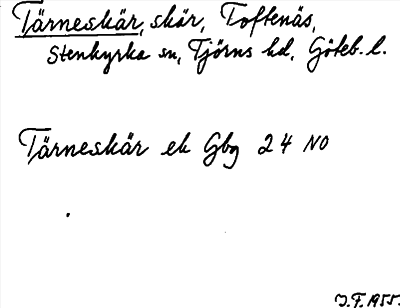 Tärneskär, skär, Toftenäs,
Stenkyrka sn, Tjörns hd, Göteb. l.
Tärneskär ek Gbg 24 NO
J.F. 1955.